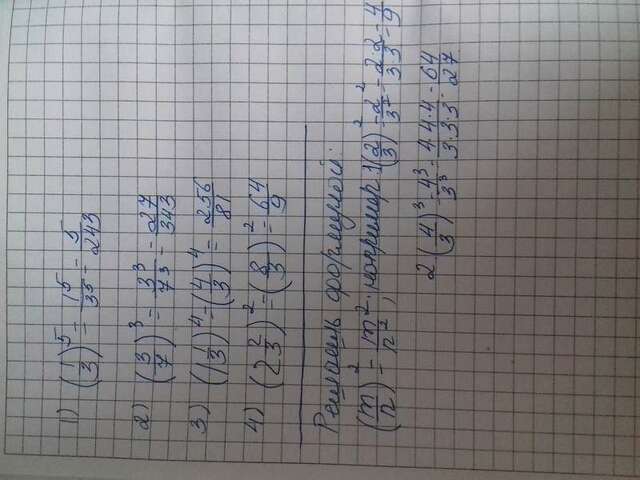 1) (1/3)^5 = 1^5/3^5 = 5/243
2) (3/7)^3 = 3^3/7^3 = 27/343
3) (1 1/3)^4 = (4/3)^4 = 256/81
4) (2 2/3)^2 = (8/3)^2 = 64/9
Решаешь формулой:
(m/n)^2 = m^2/n^2, например: 1(2/3)^2 = 2^2/3^2 = 2·2/3·3 = 4/9
2(4/3)^3 = 4^3/3^3 = 4·4·4/3·3·3 = 64/27